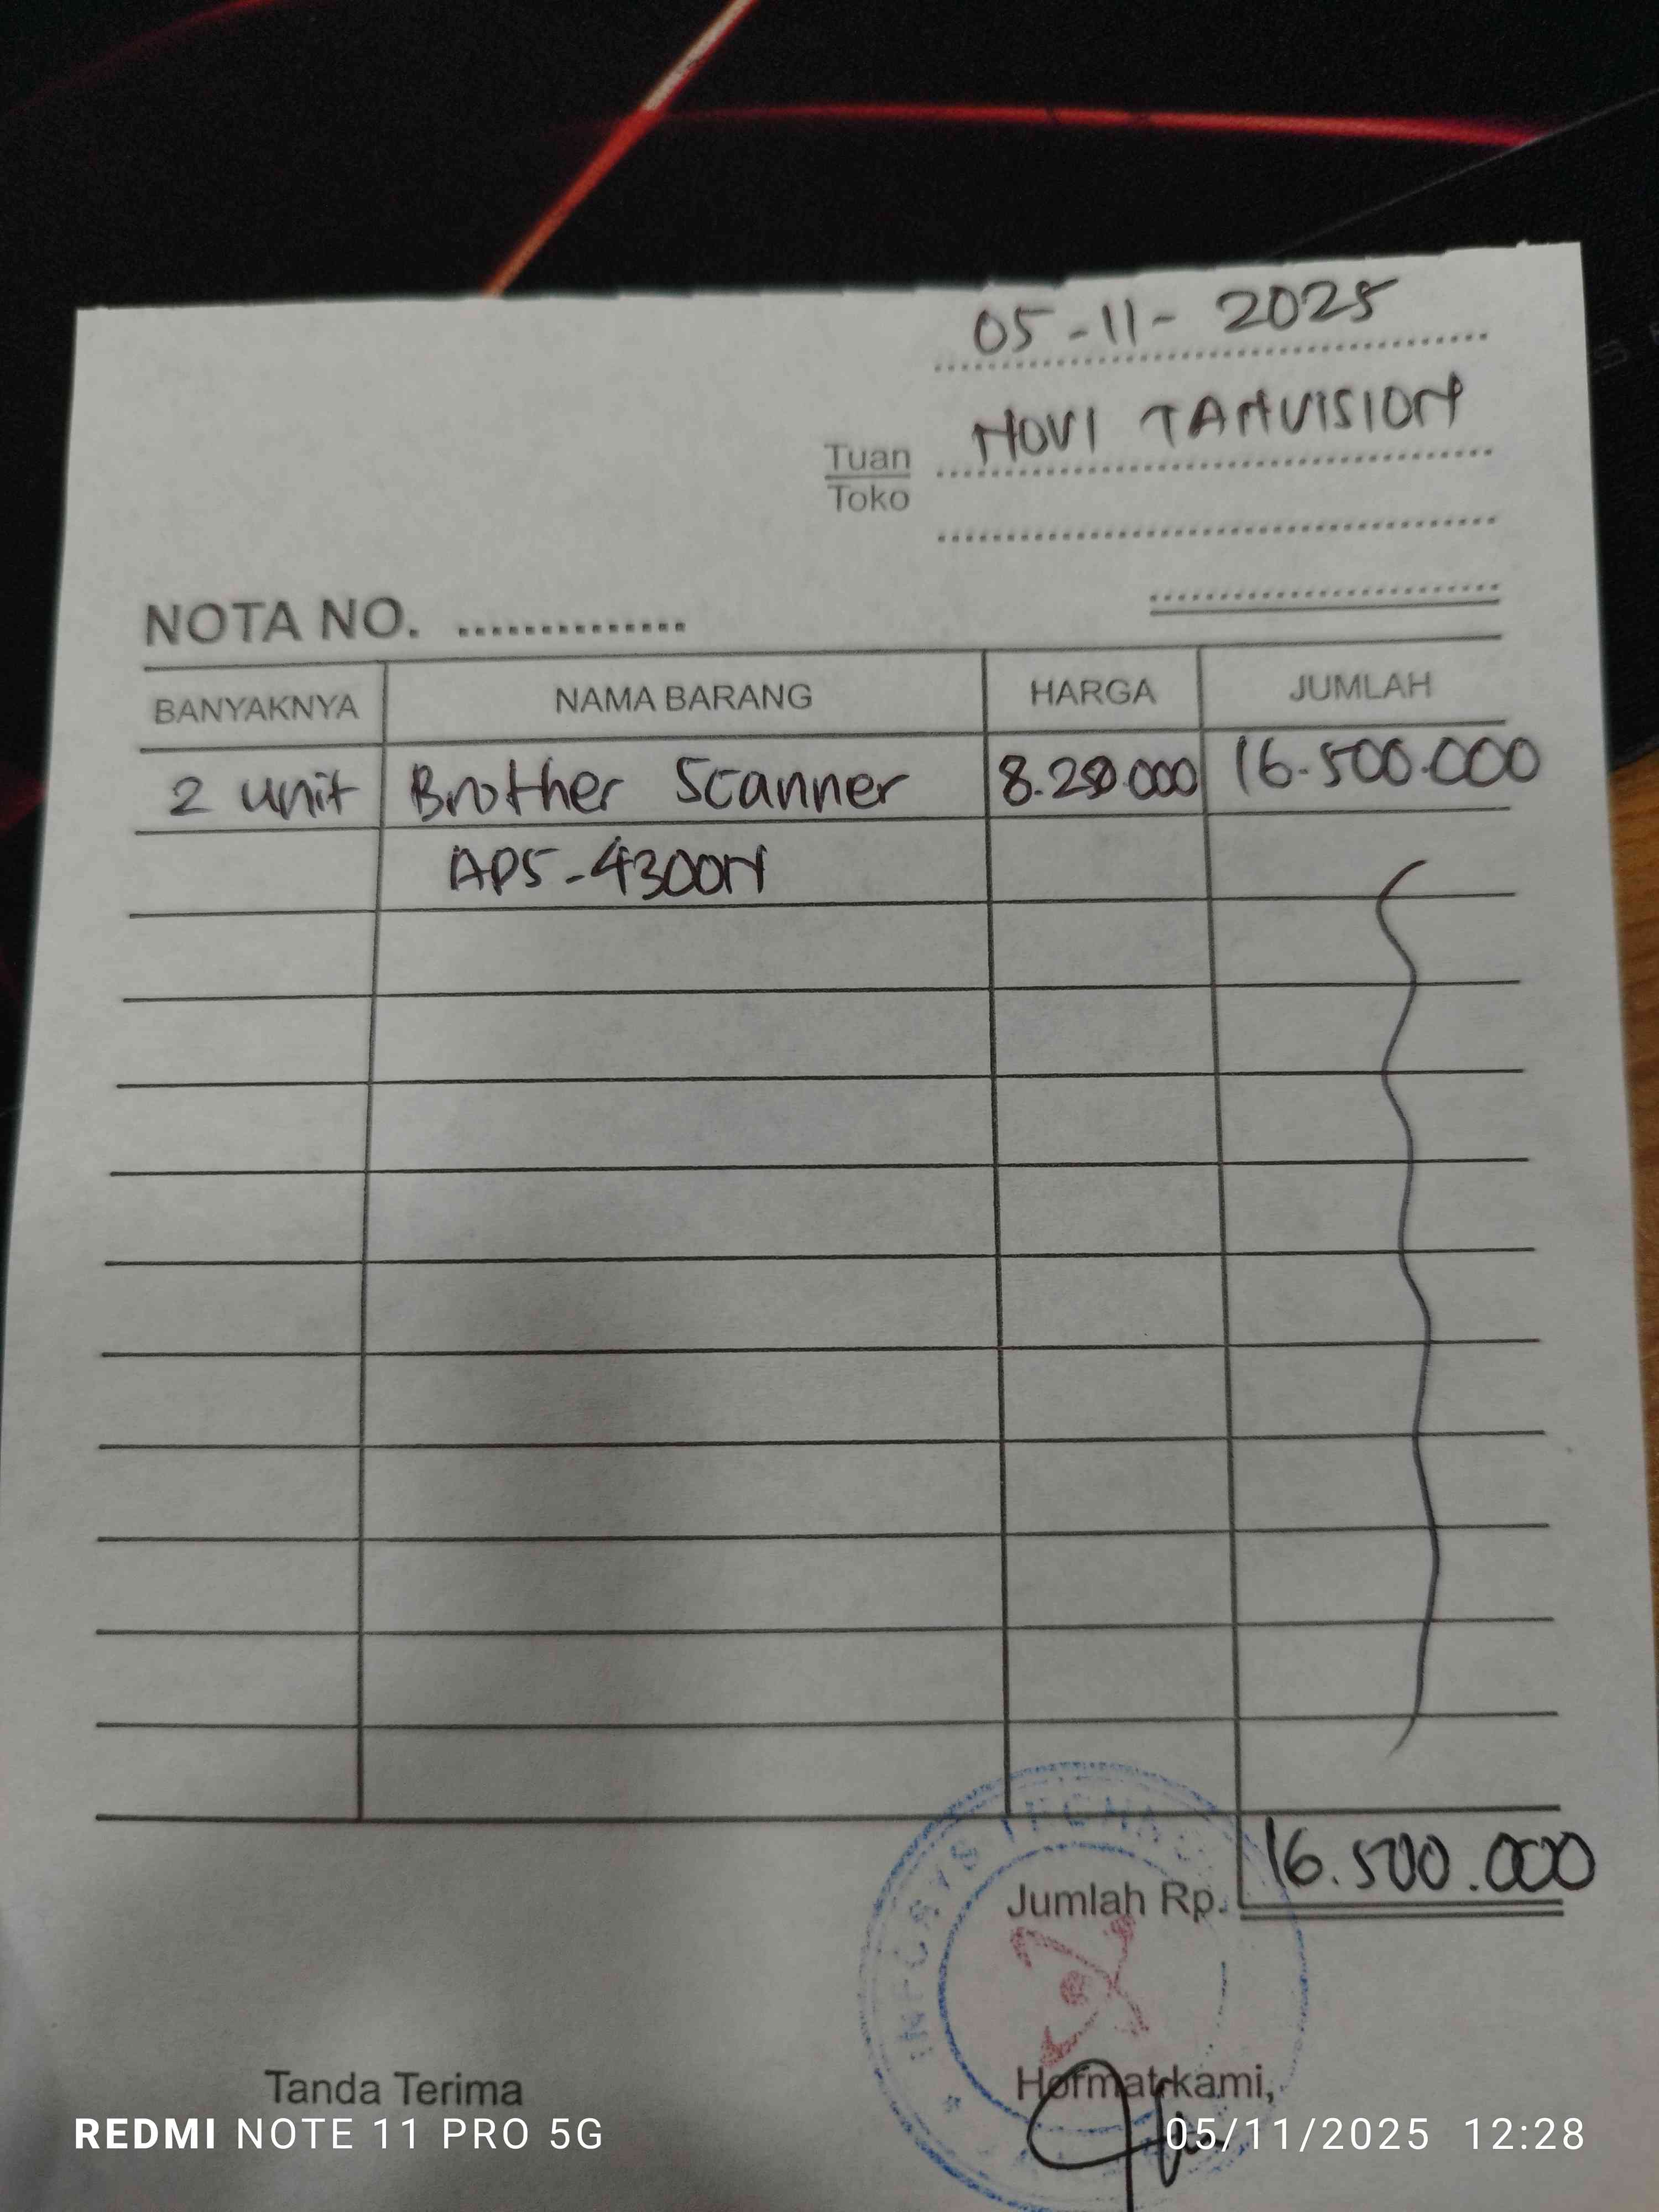 05-11-2025
Tuan
Toko
NOVI TANVISION
NOTA NO. ..............
BANYAKNYA NAMA BARANG HARGA JUMLAH
2 unit Brother Scanner 16.500.000
ADS-4300N
Jumlah Rp. 16.500.000
INFOSYS
Tanda Terima Hormat kami,
REDMI NOTE 11 PRO 5G 05/11/2025 12:28